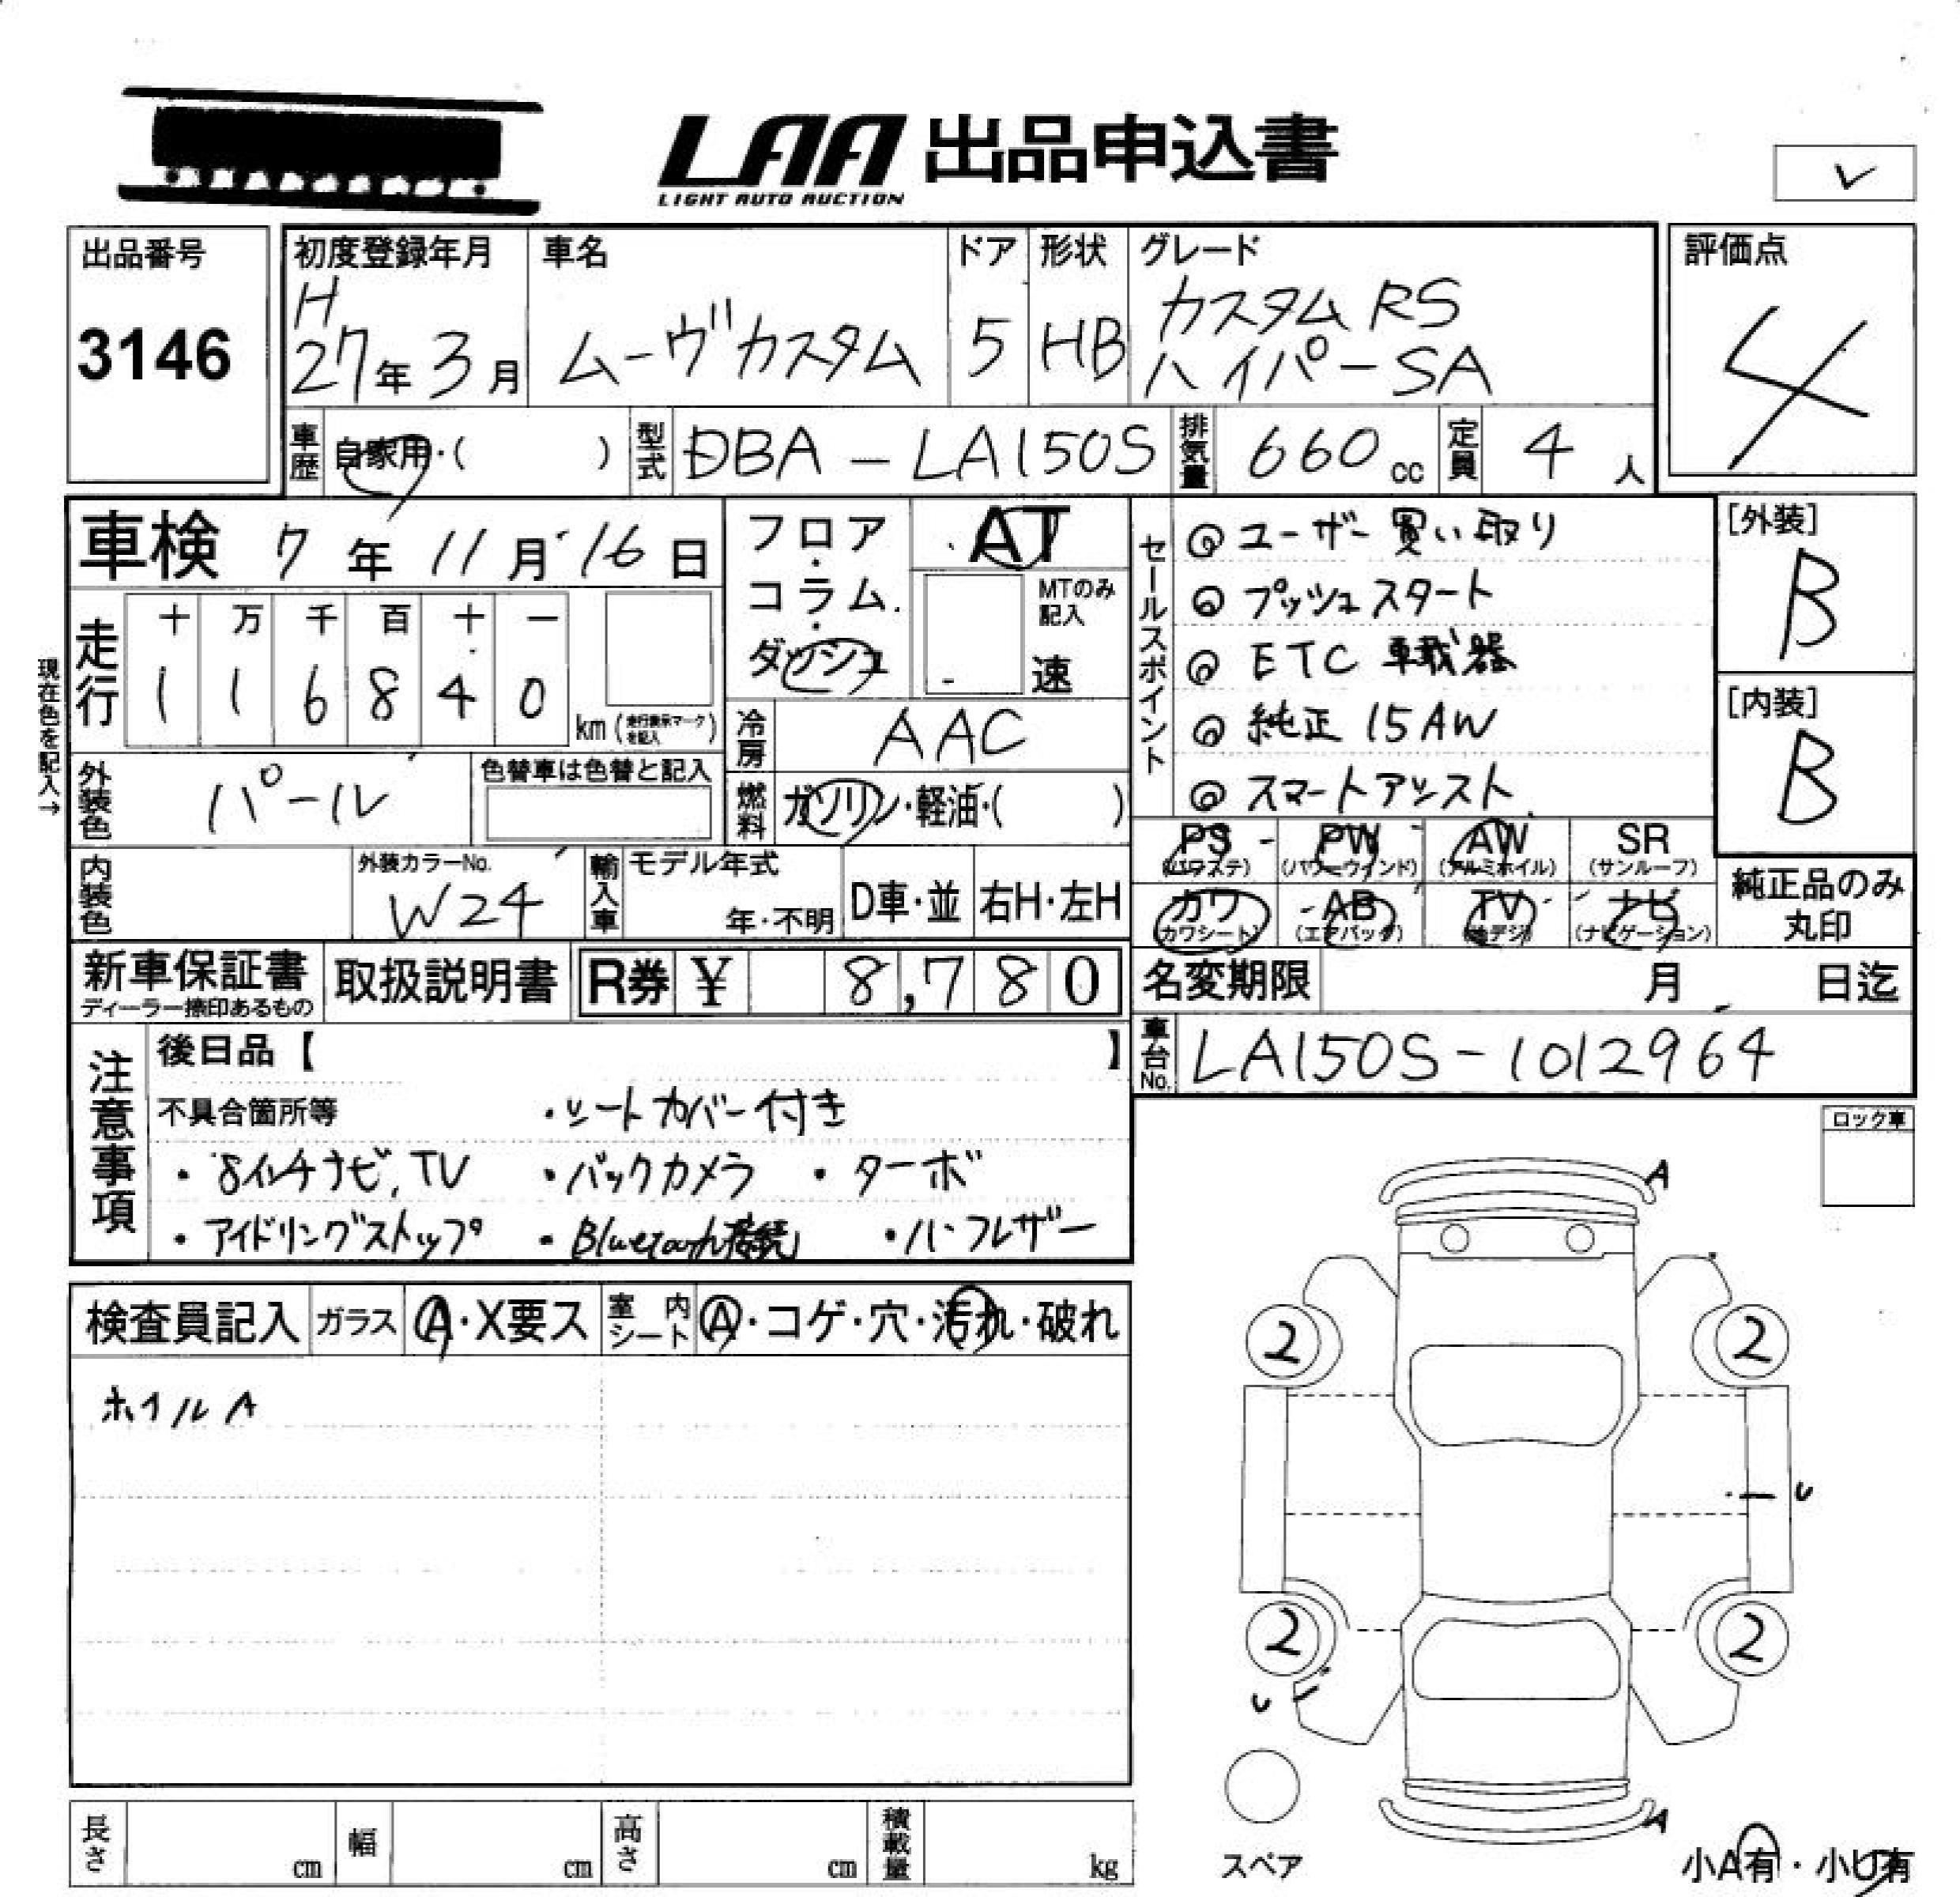 LAA 出品申込書
LIGHT AUTO AUCTION
✓
出品番号
3146
初度登録年月
H
27年3月
車名
ムーヴカスタム
ドア
5
形状
HB
グレード
カスタム RS
ハイパーSA
評価点
4
車歴
自家用・( )
型式
DBA-LA150S
排気量
660cc
定員
4人
車検 7年11月16日
フロア・コラム・ダッシュ
AT
MTのみ記入
速
セールスポイント
◎ユーザー買い取り
◎プッシュスタート
◎ETC 車載器
◎純正 15AW
◎スマートアシスト
[外装]
B
[内装]
B
現在色を記入→
走行
十 万 千 百 十 一
1 1 6 8 4 0
km (走行表示マークを記入)
冷房
AAC
外装色
パール
色替車は色替と記入
燃料
ガソリン・軽油・( )
内装色
外装カラーNo.
W24
輸入車
モデル年式
年・不明
D車・並
右H・左H
PS (パワステ)
PW (パワーウインド)
AW (アルミホイル)
SR (サンルーフ)
カワ (カワシート)
AB (エアバッグ)
TV (地デジ)
ナビ (ナビゲーション)
純正品のみ丸印
新車保証書
ディーラー捺印あるもの
取扱説明書
R券 ¥ 8,780
名変期限 月 日迄
車台No.
LA150S-1012964
注意事項
後日品【 】
不具合箇所等
・シートカバー付き
・8インチナビ,TV ・バックカメラ ・ターボ
・アイドリングストップ ・Bluetooth接続 ・ハーフレザー
ロック車
検査員記入
ガラス
A・X要ス
室内シート
A・コゲ・穴・汚れ・破れ
ホイルA
A
2 2
U
2 2
U
A
スペア
小A有・小U有
長さ cm
幅 cm
高さ cm
積載量 kg